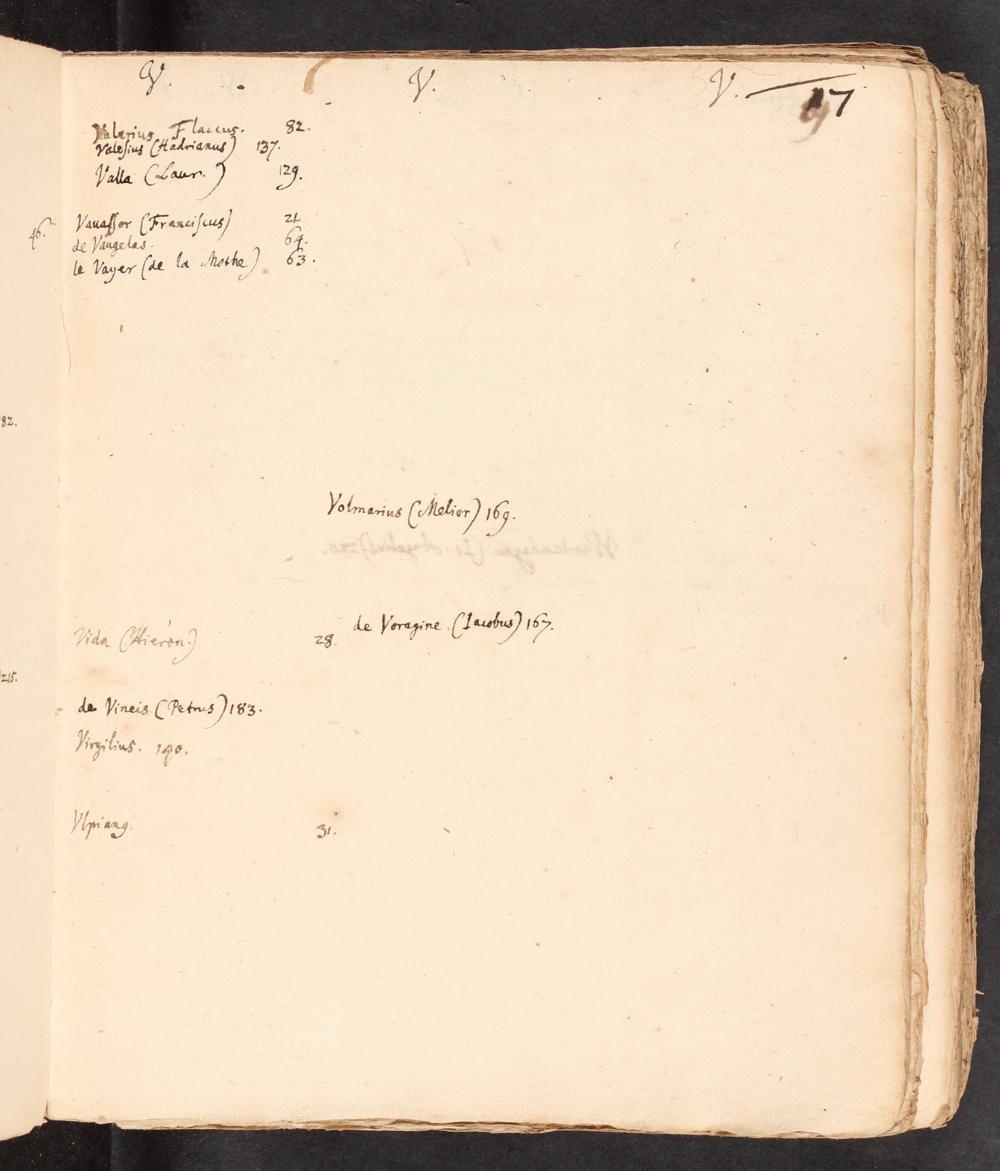 V. V. V. 17
Valerius Flaccus. 82.
Valesius (Hadrianus) 137.
Valla (Laur.) 129.
46. Vauassor (Franciscus) 21
de Vaugelas. 64.
le Vayer (de la Mothe) 63.
82.
Volmarius (Melior) 169.
de Voragine (Iacobus) 167.
Vida (Hieron.) 28.
215.
de Vineis (Petrus) 183.
Virgilius. 190.
Vlpiang. 31.